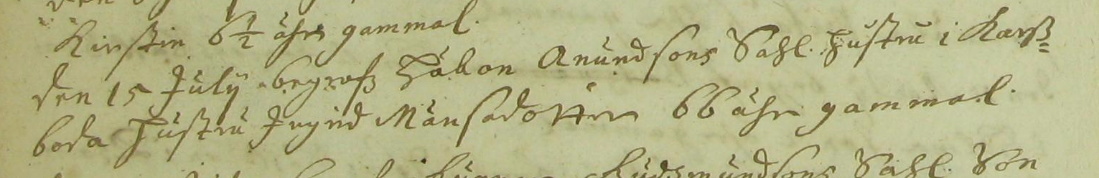 Kirstin 6 1/2 åhrs gammal.
den 15 Julij begrofz Håkon Anundsons Sahl. Hustru i Karsz=
boda Hustru Ingrid Månsadotter 66 åhr gammal.
Sahl. Son